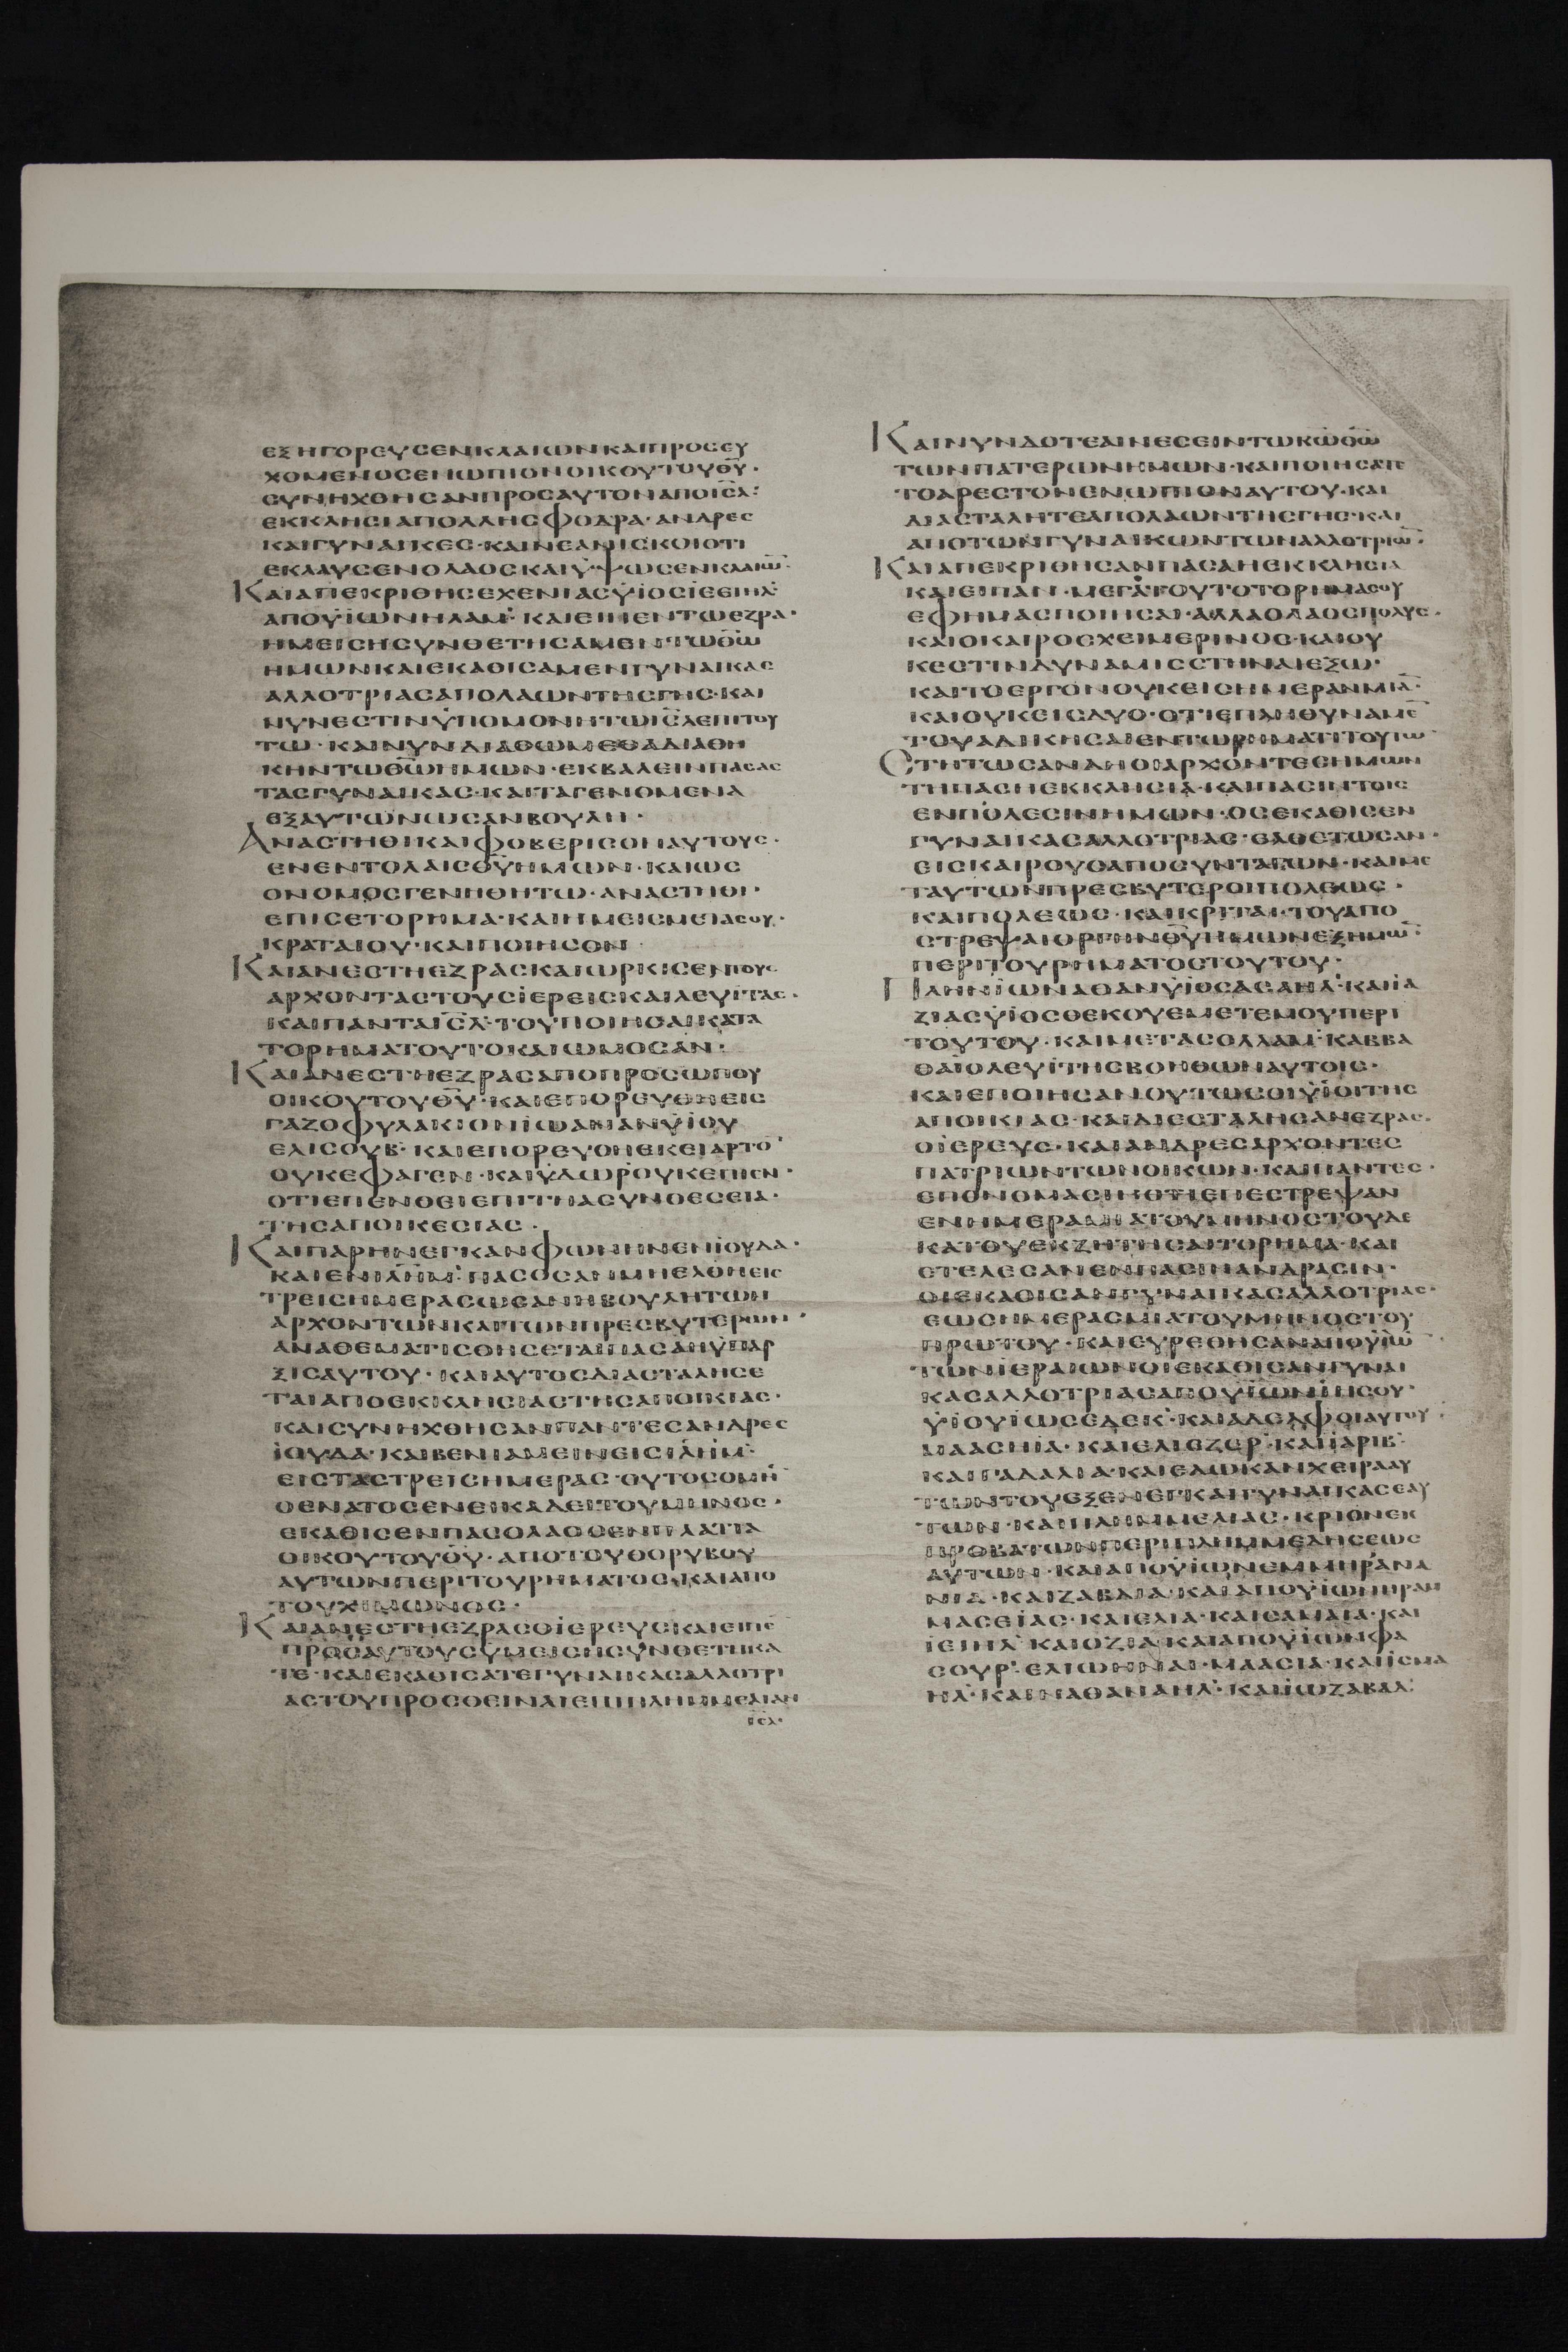 ΕΞΗΓΟΡΕΥϹΕΝΚΛΑΙΩΝΚΑΙΠΡΟϹΕΥ
ΧΟΜΕΝΟϹΕΝΩΠΙΟΝΟΙΚΟΥΤΟΥΘ̅Υ̅·
ϹΥΝΗΧΘΗϹΑΝΠΡΟϹΑΥΤΟΝΑΠΟΙ̅Ϲ̅Λ̅·
ΕΚΚΛΗϹΙΑΠΟΛΛΗϹΦΟΔΡΑ·ΑΝΔΡΕϹ
ΚΑΙΓΥΝΑΙΚΕϹ·ΚΑΙΝΕΑΝΙϹΚΟΙΟΤΙ
ΕΚΛΑΥϹΕΝΟΛΑΟϹΚΑΙΫΨΩϹΕΝΚΛΑΙΩ̅·
ΚΑΙΑΠΕΚΡΙΘΗϹΕΧΕΝΙΑϹΫΙΟϹΪΕΕΙΗΛ
ΑΠΟΫΙΩΝΗΛΑΜ·ΚΑΙΕΙΠΕΝΤΩΕΖΡΑ·
ΗΜΕΙϹΗϹΥΝΘΕΤΗϹΑΜΕΝΤΩΘ̅Ω̅
ΗΜΩΝΚΑΙΕΚΑΘΙϹΑΜΕΝΓΥΝΑΙΚΑϹ
ΑΛΛΟΤΡΙΑϹΑΠΟΛΑΩΝΤΗϹΓΗϹ·ΚΑΙ
ΝΥΝΕϹΤΙΝΫΠΟΜΟΝΗΤΩΙ̅Ϲ̅Λ̅ΕΠΙΤΟΥ
ΤΩ·ΚΑΙΝΥΝΔΙΑΘΩΜΕΘΑΔΙΑΘΗ
ΚΗΝΤΩΘ̅Ω̅ΗΜΩΝ·ΕΚΒΑΛΕΙΝΠΑϹΑϹ
ΤΑϹΓΥΝΑΙΚΑϹ·ΚΑΙΤΑΓΕΝΟΜΕΝΑ
ΕΞΑΥΤΩΝΩϹΑΝΒΟΥΛΗ·
ΑΝΑϹΤΗΘΙΚΑΙΦΟΒΕΡΙϹΟΝΑΥΤΟΥϹ·
ΕΝΕΝΤΟΛΑΙϹΘ̅Υ̅ΗΜΩΝ·ΚΑΙΩϹ
ΟΝΟΜΟϹΓΕΝΗΘΗΤΩ·ΑΝΑϹΤΗΘΙ·
ΕΠΙϹΕΤΟΡΗΜΑ·ΚΑΙΗΜΕΙϹΜΕΤΑϹΟΥ·
ΚΡΑΤΑΙΟΥ·ΚΑΙΠΟΙΗϹΟΝ
ΚΑΙΑΝΕϹΤΗΕΖΡΑϹΚΑΙΩΡΚΙϹΕΝΤΟΥϹ
ΑΡΧΟΝΤΑϹΤΟΥϹΪΕΡΕΙϹΚΑΙΛΕΥΪΤΑϹ·
ΚΑΙΠΑΝΤΑΙ̅Ϲ̅Λ̅·ΤΟΥΠΟΙΗϹΑΙΚΑΤΑ
ΤΟΡΗΜΑΤΟΥΤΟΚΑΙΩΜΟϹΑΝ·
ΚΑΙΑΝΕϹΤΗΕΖΡΑϹΑΠΟΠΡΟϹΩΠΟΥ
ΟΙΚΟΥΤΟΥΘ̅Υ̅·ΚΑΙΕΠΟΡΕΥΘΗΕΙϹ
ΓΑΖΟΦΥΛΑΚΙΟΝΪΩΑΝΑΝΫΙΟΥ
ΕΛΙϹΟΥΒ·ΚΑΙΕΠΟΡΕΥΘΗΕΚΕΙΑΡΤΟ̅
ΟΥΚΕΦΑΓΕΝ·ΚΑΙΫΔΩΡΟΥΚΕΠΙΕΝ·
ΟΤΙΕΠΕΝΘΕΙΕΠΙΤΗΑϹΥΝΘΕϹΕΙΑ·
ΤΗϹΑΠΟΙΚΕϹΙΑϹ·
ΚΑΙΠΑΡΗΝΕΓΚΑΝΦΩΝΗΝΕΝΪΟΥΔΑ·
ΚΑΙΕΝΙ̅Λ̅Η̅Μ̅·ΠΑϹΟϹΑΝΜΗΕΛΘΗΕΙϹ
ΤΡΕΙϹΗΜΕΡΑϹΩϹΑΝΗΒΟΥΛΗΤΩΝ
ΑΡΧΟΝΤΩΝΚΑΙΤΩΝΠΡΕϹΒΥΤΕΡΩΝ·
ΑΝΑΘΕΜΑΤΙϹΘΗϹΕΤΑΙΠΑϹΑΗΫΠΑΡ
ΞΙϹΑΥΤΟΥ·ΚΑΙΑΥΤΟϹΔΙΑϹΤΑΛΗϹΕ
ΤΑΙΑΠΟΕΚΚΛΗϹΙΑϹΤΗϹΑΠΟΙΚΙΑϹ·
ΚΑΙϹΥΝΗΧΘΗϹΑΝΠΑΝΤΕϹΑΝΔΡΕϹ
ΪΟΥΔΑ·ΚΑΙΒΕΝΙΑΜΕΙΝΕΙϹΙ̅Λ̅Η̅Μ̅·
ΕΙϹΤΑϹΤΡΕΙϹΗΜΕΡΑϹ·ΟΥΤΟϹΟΜΗ
ΟΕΝΑΤΟϹΕΝΕΙΚΑΔΕΙΤΟΥΜΗΝΟϹ·
ΕΚΑΘΙϹΕΝΠΑϹΟΛΑΟϹΕΝΠΛΑΤΙΑ
ΟΙΚΟΥΤΟΥΘ̅Υ̅·ΑΠΟΤΟΥΘΟΡΥΒΟΥ
ΑΥΤΩΝΠΕΡΙΤΟΥΡΗΜΑΤΟϹ·ΚΑΙΑΠΟ
ΤΟΥΧΙΜΩΝΟϹ·
ΚΑΙΑΝΕϹΤΗΕΖΡΑϹΟΪΕΡΕΥϹΚΑΙΕΙΠΕ̅
ΠΡΟϹΑΥΤΟΥϹΫΜΕΙϹΗϹΥΝΘΕΤΗΚΑ
ΤΕ·ΚΑΙΕΚΑΘΙϹΑΤΕΓΥΝΑΙΚΑϹΑΛΛΟΤΡΙ
ΑϹΤΟΥΠΡΟϹΘΕΙΝΑΙΕΠΙΠΛΗΜΜΕΛΙΑΝ
Ι̅Ϲ̅Λ̅·
ΚΑΙΝΥΝΔΟΤΕΑΙΝΕϹΕΙΝΤΩΚ̅Ω̅Θ̅Ω̅
ΤΩΝΠΑΤΕΡΩΝΗΜΩΝ·ΚΑΙΠΟΙΗϹΑΤΕ
ΤΟΑΡΕϹΤΟΝΕΝΩΠΙΟΝΑΥΤΟΥ·ΚΑΙ
ΔΙΑϹΤΑΛΗΤΕΑΠΟΛΑΩΝΤΗϹΓΗϹ·ΚΑΙ
ΑΠΟΤΩΝΓΥΝΑΙΚΩΝΤΩΝΑΛΛΟΤΡΙΩ̅·
ΚΑΙΑΠΕΚΡΙΘΗϹΑΝΠΑϹΑΗΕΚΚΛΗϹΙΑ
ΚΑΙΕΙΠΑΝ·ΜΕΓΑΤΟΥΤΟΤΟΡΗΜΑϹΟΥ
ΕΦΗΜΑϹΠΟΙΗϹΑΙ·ΑΛΛΑΟΛΑΟϹΠΟΛΥϹ·
ΚΑΙΟΚΑΙΡΟϹΧΕΙΜΕΡΙΝΟϹ·ΚΑΙΟΥ
ΚΕϹΤΙΝΔΥΝΑΜΙϹϹΤΗΝΑΙΕΞΩ·
ΚΑΙΤΟΕΡΓΟΝΟΥΚΕΙϹΗΜΕΡΑΝΜΙΑ̅·
ΚΑΙΟΥΚΕΙϹΔΥΟ·ΟΤΙΕΠΛΗΘΥΝΑΜΕ̅
ΤΟΥΑΔΙΚΗϹΑΙΕΝΤΩΡΗΜΑΤΙΤΟΥΤΩ
ϹΤΗΤΩϹΑΝΔΗΟΙΑΡΧΟΝΤΕϹΗΜΩΝ
ΤΗΠΑϹΗΕΚΚΛΗϹΙΑ·ΚΑΙΠΑϹΙΝΤΟΙϹ
ΕΝΠΟΛΕϹΙΝΗΜΩΝ·ΟϹΕΚΑΘΙϹΕΝ
ΓΥΝΑΙΚΑϹΑΛΛΟΤΡΙΑϹ·ΕΛΘΕΤΩϹΑΝ·
ΕΙϹΚΑΙΡΟΥϹΑΠΟϹΥΝΤΑΓΩΝ·ΚΑΙΜΕ
ΤΑΥΤΩΝΠΡΕϹΒΥΤΕΡΟΙΠΟΛΕΩϹ·
ΚΑΙΠΟΛΕΩϹ·ΚΑΙΚΡΙΤΑΙ·ΤΟΥΑΠΟ
ϹΤΡΕΨΑΙΟΡΓΗΝΘ̅Υ̅ΗΜΩΝΕΞΗΜΩ̅·
ΠΕΡΙΤΟΥΡΗΜΑΤΟϹΤΟΥΤΟΥ·
ΠΛΗΝΪΩΝΑΘΑΝΫΙΟϹΑϹΑΗΛ·ΚΑΙΪΑ
ΖΙΑϹΫΙΟϹΘΕΚΟΥΕΜΕΤΕΜΟΥΠΕΡΙ
ΤΟΥΤΟΥ·ΚΑΙΜΕΤΑϹΟΛΛΑΜ·ΚΑΒΒΑ
ΘΑΪΟΛΕΥΪΤΗϹΒΟΗΘΩΝΑΥΤΟΙϹ·
ΚΑΙΕΠΟΙΗϹΑΝΟΥΤΩϹΟΙΫΙΟΙΤΗϹ
ΑΠΟΙΚΙΑϹ·ΚΑΙΔΙΕϹΤΑΛΗϹΑΝΕΖΡΑϹ·
ΟΪΕΡΕΥϹ·ΚΑΙΑΝΔΡΕϹΑΡΧΟΝΤΕϹ
ΠΑΤΡΙΩΝΤΩΝΟΙΚΩΝ·ΚΑΙΠΑΝΤΕϹ·
ΕΠΟΝΟΜΑϹΙΝΟΤΙΕΠΕϹΤΡΕΨΑΝ
ΕΝΗΜΕΡΑΜΙΑΤΟΥΜΗΝΟϹΤΟΥΔΕ
ΚΑΤΟΥΕΚΖΗΤΗϹΑΙΤΟΡΗΜΑ·ΚΑΙ
ΕΤΕΛΕϹΑΝΕΝΠΑϹΙΝΑΝΔΡΑϹΙΝ·
ΟΙΕΚΑΘΙϹΑΝΓΥΝΑΙΚΑϹΑΛΛΟΤΡΙΑϹ·
ΕΩϹΗΜΕΡΑϹΜΙΑΤΟΥΜΗΝΟϹΤΟΥ
ΠΡΩΤΟΥ·ΚΑΙΕΥΡΕΘΗϹΑΝΑΠΟΫΙΩ̅
ΤΩΝΪΕΡΑΙΩΝΟΙΕΚΑΘΙϹΑΝΓΥΝΑΙ
ΚΑϹΑΛΛΟΤΡΙΑϹΑΠΟΫΙΩΝΪΗϹΟΥ·
ΫΙΟΥΪΩϹΕΔΕΚ·ΚΑΙΑΔΕΛΦΟΙΑΥΤΟΥ·
ΜΑΑϹΗΙΑ·ΚΑΙΕΛΙΕΖΕΡ·ΚΑΙΪΑΡΙΒ·
ΚΑΙΓΑΔΑΛΙΑ·ΚΑΙΕΔΩΚΑΝΧΕΙΡΑΑΥ
ΤΩΝΤΟΥΕΞΕΝΕΓΚΑΙΓΥΝΑΙΚΑϹΕΑΥ
ΤΩΝ·ΚΑΙΠΛΗΜΜΕΛΙΑϹ·ΚΡΙΟΝΕΚ
ΠΡΟΒΑΤΩΝΠΕΡΙΠΛΗΜΜΕΛΗϹΕΩϹ
ΑΥΤΩΝ·ΚΑΙΑΠΟΫΙΩΝΕΜΜΗΡ·ΑΝΑ
ΝΙΑ·ΚΑΙΖΑΒΔΙΑ·ΚΑΙΑΠΟΫΙΩΝΗΡΑΜ
ΜΑϹΕΙΑϹ·ΚΑΙΕΛΙΑ·ΚΑΙϹΑΜΑΙΑ·ΚΑΙ
ΪΕΙΗΛ·ΚΑΙΟΖΙΑ·ΚΑΙΑΠΟΫΙΩΝΦΑ
ϹΟΥΡ·ΕΛΙΩΗΝΑΙ·ΜΑΑϹΙΑ·ΚΑΙΪϹΜΑ
ΗΛ·ΚΑΙΝΑΘΑΝΑΗΛ·ΚΑΙΪΩΖΑΒΑΔ·